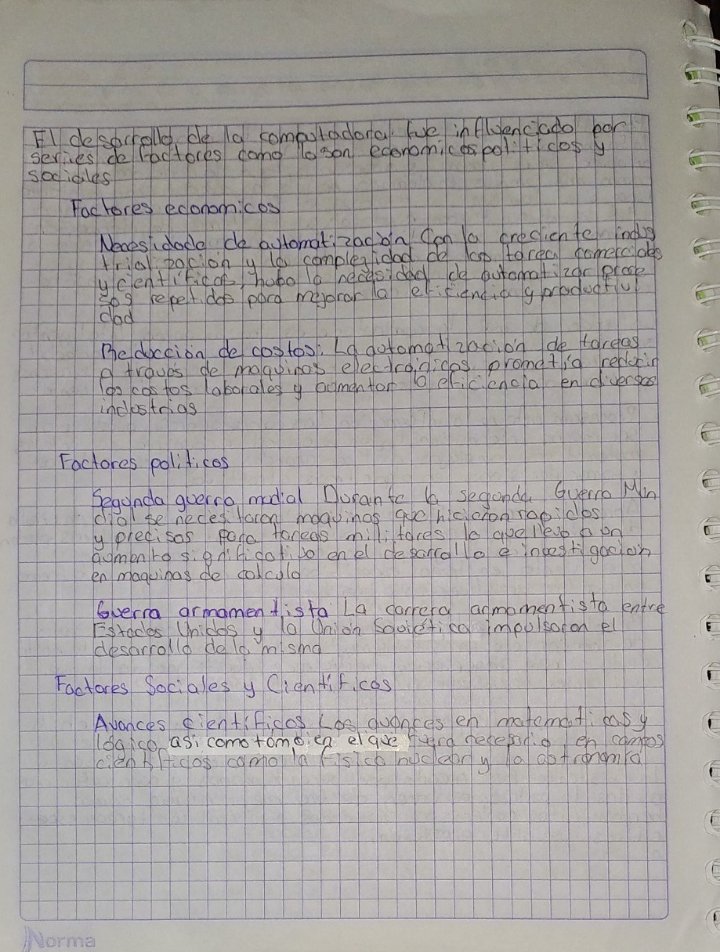 El desarrollo de la computadora fue influenciado por
series de factores como lo son economicos politicos y
sociales
Factores economicos
Necesidade de automatización Con la creciente indus
trializacion y la complejidad de las tareas comerciales
y cientificas, hubo la necesidad de automatizar proce
sos repetidos para mejorar la eficiencia y productivi
dad
Reduccion de costos: La automatización de tareas
a traves de maquinas electronicas prometia reducir
los costos laborales y aumentar la eficiencia en diversas
industrias
Factores politicos
Segunda guerra mudial Durante la segunda Guerra Mun
dial se necesitaron maquinas que hicieron rapidos
y precisas para tareas militares lo que llevo a un
aumento significatibo en el desarrollo e investigacion
en maquinas de calculo
Guerra armamentista La carrera armamentista entre
Estados Unidos y la Union Sovietica impulsaron el
desarrollo de la misma
Factores Sociales y Cientificos
Avances cientificos Los avances en matematicas y
lógica, asi como tambien el que fuera necesario en campos
cientificos como la fisica nuclear y la astronomia
Norma